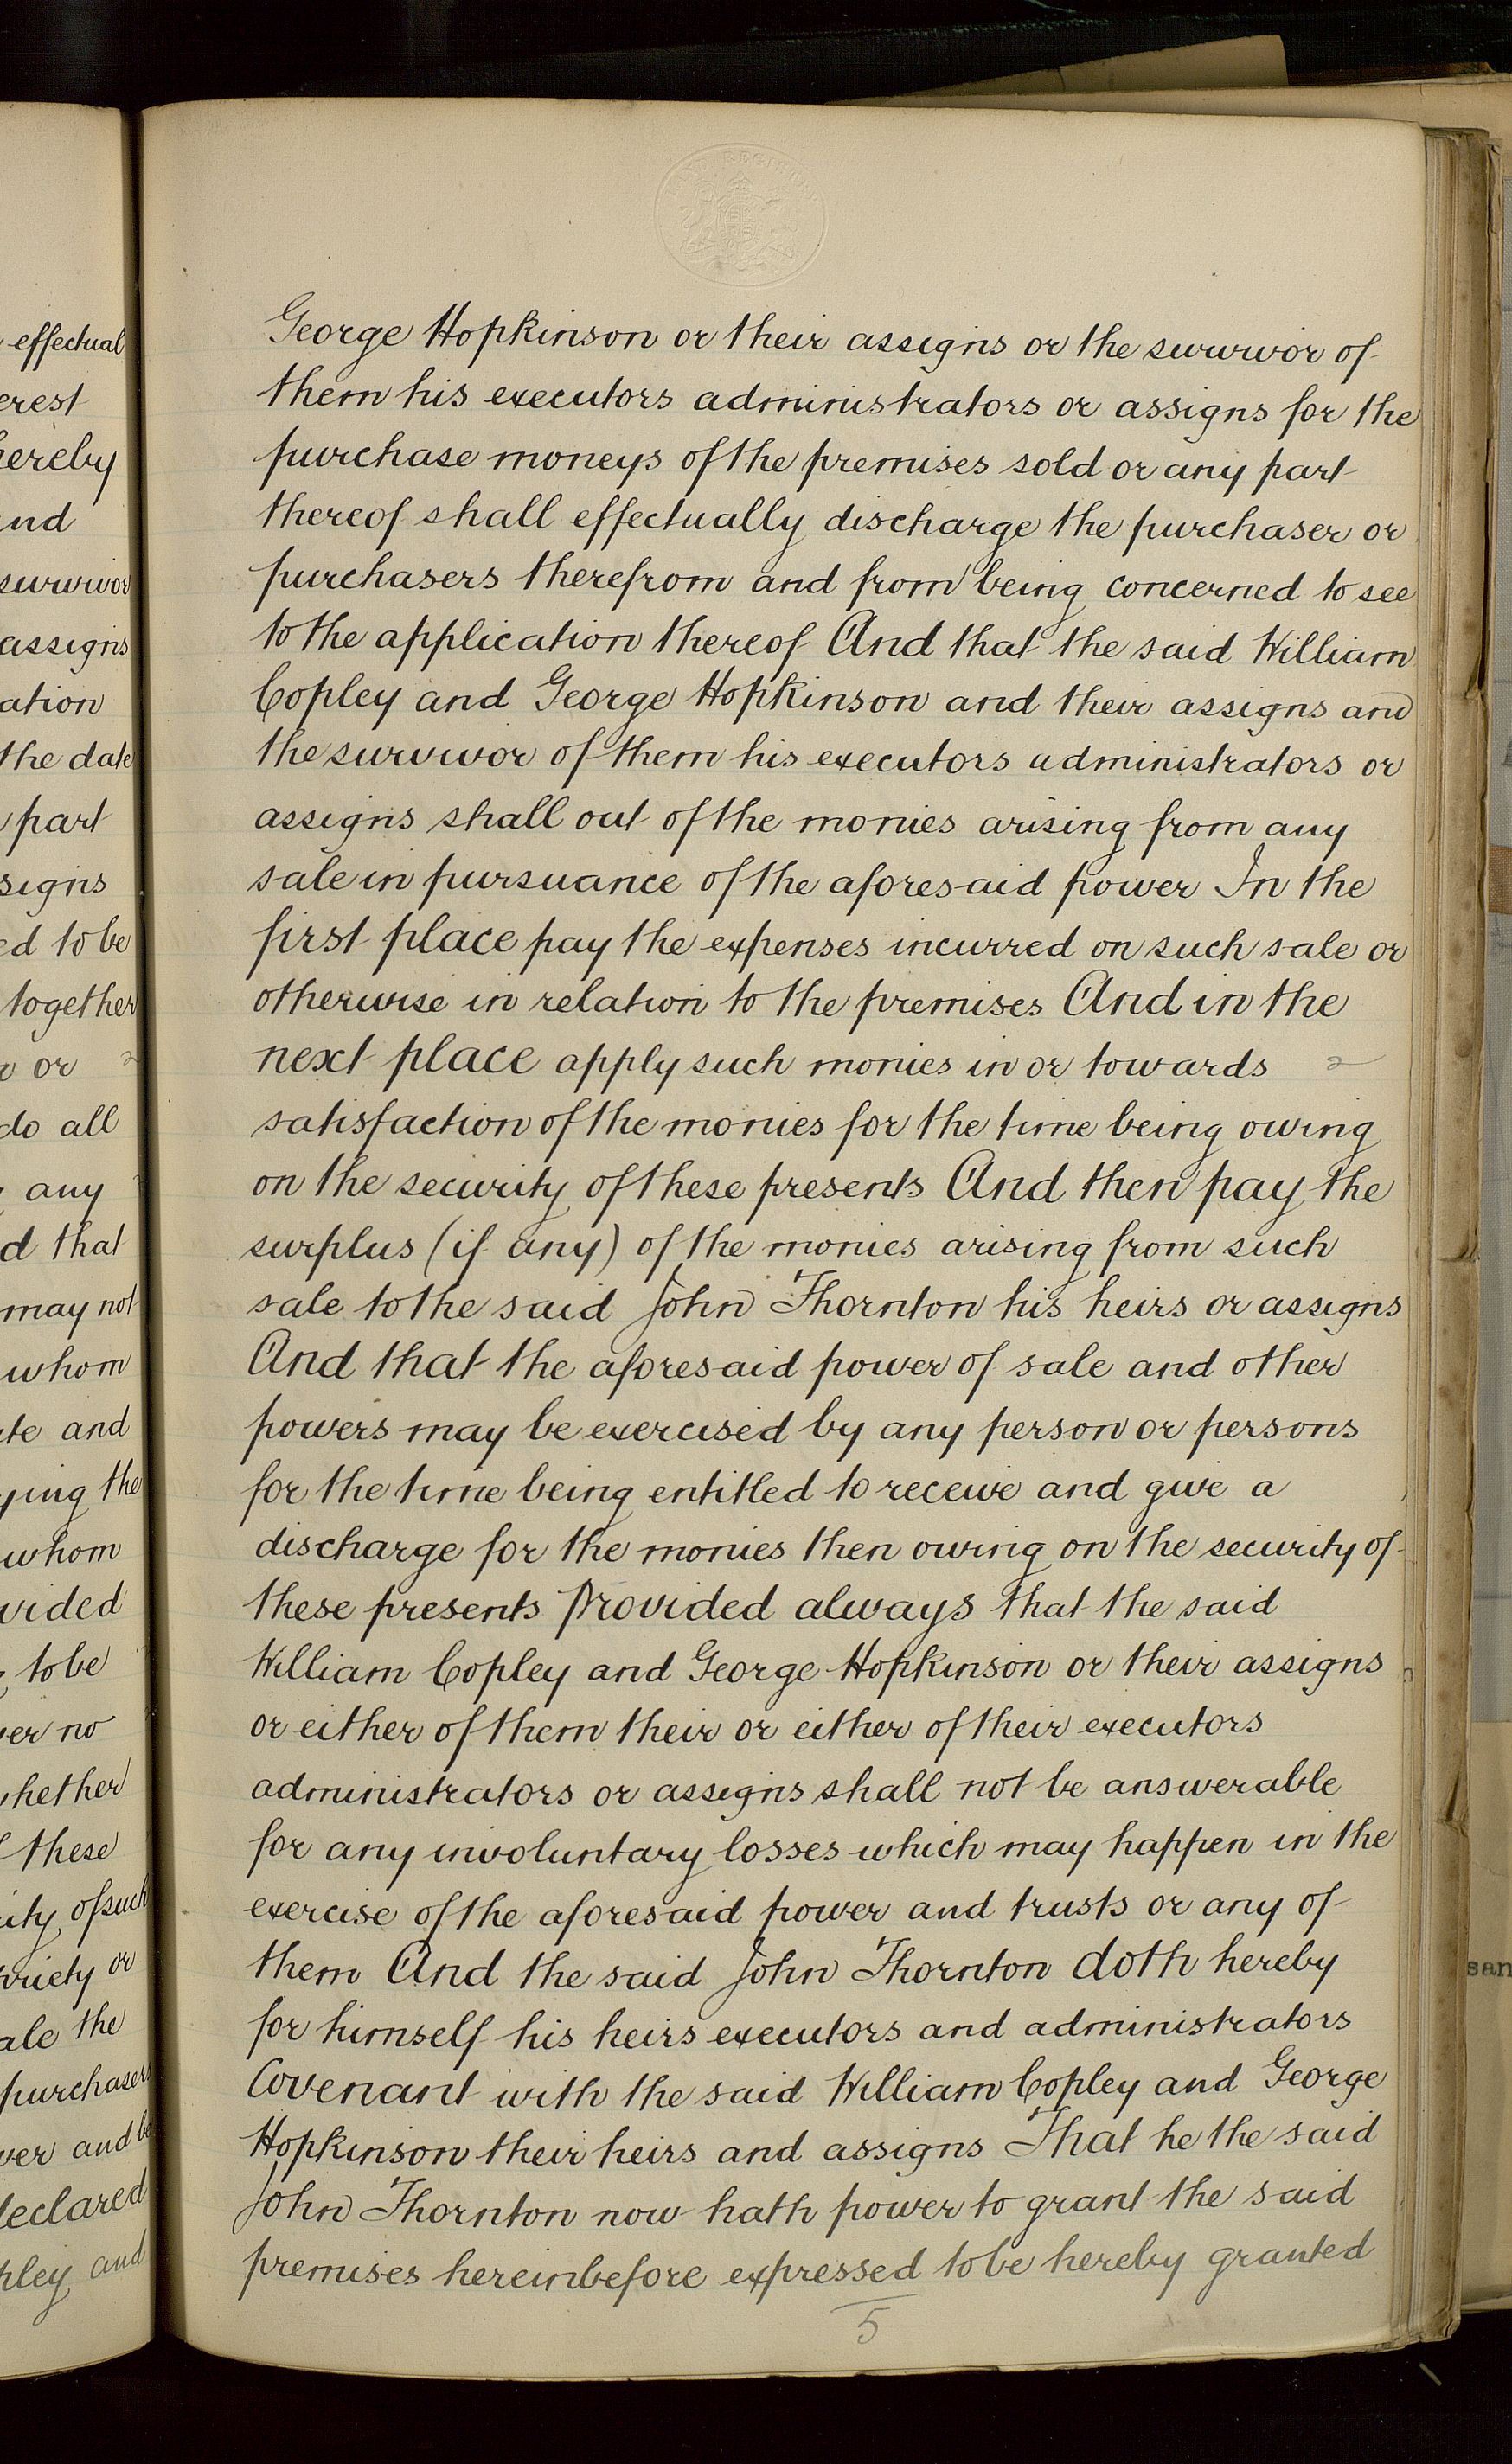 effectual
erest
hereby
and
survivor
assigns
ation
the date
part
signs
ed to be
together
or
do all
any
d that
may not
whom
te and
ying the
whom
vided
to be
er no
whether
these
ity of such
riety or
ale the
purchasers
ver and be
declared
pley and
George Hopkinson or their assigns or the survivor of
them his executors administrators or assigns for the
purchase moneys of the premises sold or any part
thereof shall effectually discharge the purchaser or
purchasers therefrom and from being concerned to see
to the application thereof And that the said William
Copley and George Hopkinson and their assigns and
the survivor of them his executors administrators or
assigns shall out of the monies arising from any
sale in pursuance of the aforesaid power In the
first place pay the expenses incurred on such sale or
otherwise in relation to the premises And in the
next place apply such monies in or towards
satisfaction of the monies for the time being owing
on the security of these presents And then pay the
surplus (if any) of the monies arising from such
sale to the said John Thornton his heirs or assigns
And that the aforesaid power of sale and other
powers may be exercised by any person or persons
for the time being entitled to receive and give a
discharge for the monies then owing on the security of
these presents Provided always that the said
William Copley and George Hopkinson or their assigns
or either of them their or either of their executors
administrators or assigns shall not be answerable
for any involuntary losses which may happen in the
exercise of the aforesaid power and trusts or any of
them And the said John Thornton doth hereby
for himself his heirs executors and administrators
Covenant with the said William Copley and George
Hopkinson their heirs and assigns That he the said
John Thornton now hath power to grant the said
premises hereinbefore expressed to be hereby granted
5
san